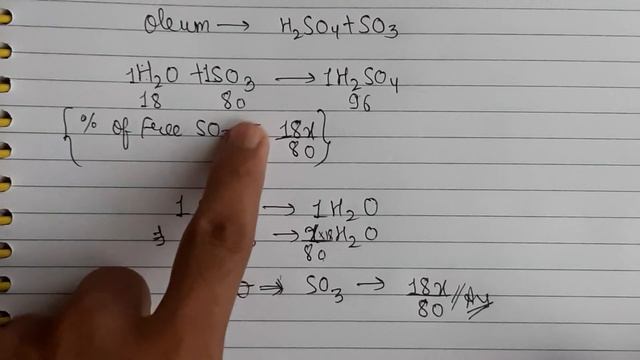 Oleum → H₂SO₄ + SO₃
1H₂O + 1SO₃ → 1H₂SO₄
18 80 96
{% of Free SO 18x/80}
1 → 1H₂O
⇒ → H₂O
80
⇒ SO₃ → 18x/80 // Ans